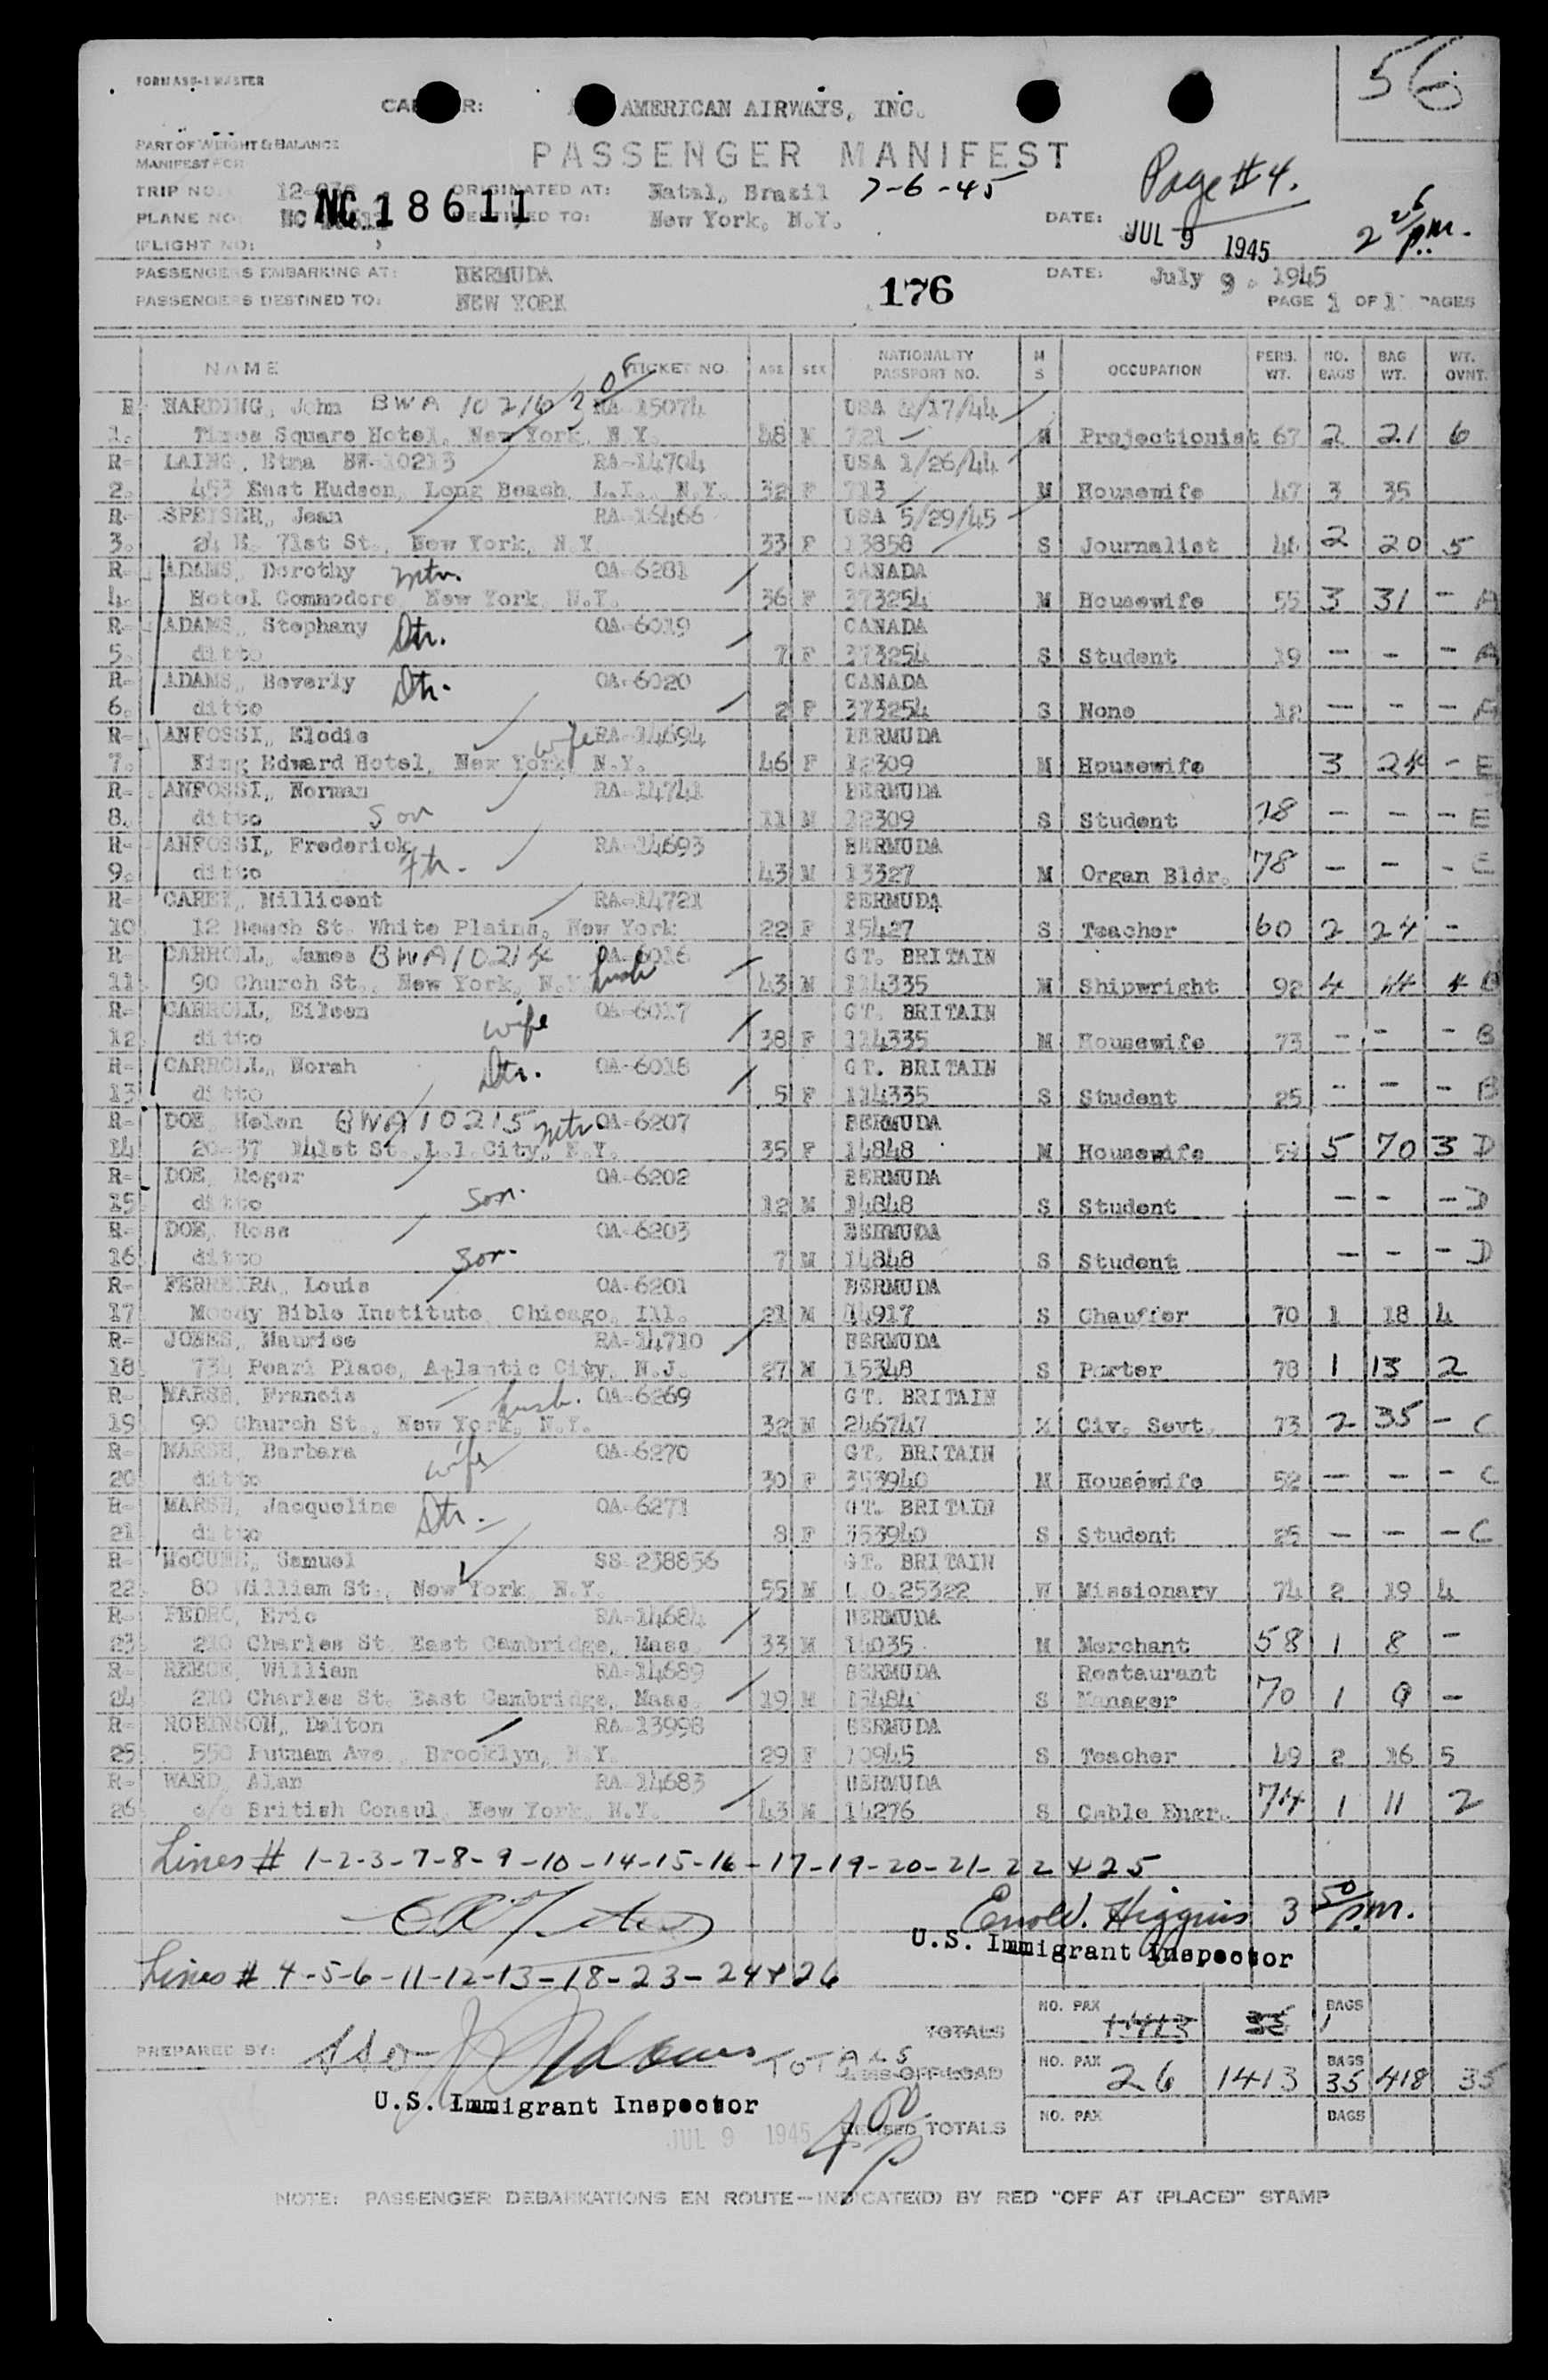 FORM ASB-1 MASTER
56
CA R: AMERICAN AIRWAYS, INC.
PART OF WEIGHT & BALANCE
MANIFEST FOR
PASSENGER MANIFEST
Page #4.
TRIP NO. ORIGINATED AT: Natal, Brazil 7-6-45
PLANE NO. NC 18611 TO: New York, N.Y. DATE: JUL 9 1945 2 26 p.m.
(FLIGHT NO: )
PASSENGERS EMBARKING AT: BERMUDA DATE: July 9, 1945
PASSENGERS DESTINED TO: NEW YORK 176 PAGE 1 OF 1 PAGES
NAME TICKET NO. AGE SEX NATIONALITY PASSPORT NO. M S OCCUPATION PERS. WT. NO. BAGS BAG WT. WT. OVNT.
R- HARDING, John BWA 10216 RA-15074 USA 4/17/44
1. Times Square Hotel, New York, N.Y. 48 M 721 M Projectionist 67 2 21 6
R- LAING, Etna BW-10213 RA-14704 USA 1/26/44
2. 453 East Hudson, Long Beach, L.I., N.Y. 32 F 713 M Housewife 47 3 35
R- SPEISER, Jean RA-16466 USA 5/29/45
3. 24 E. 71st St., New York, N.Y. 33 F 13858 S Journalist 46 2 20 5
R- ADAMS, Dorothy mtr. OA-6281 CANADA
4. Hotel Commodore, New York, N.Y. 36 F 373254 M Housewife 55 3 31 - A
R- ADAMS, Stephany Dtr. OA-6019 CANADA
5. ditto 7 F 373254 S Student 19 - - - A
R- ADAMS, Beverly Dtr. OA-6020 CANADA
6. ditto 2 F 373254 S None 12 - - - A
R- ANFOSSI, Elodie wife RA-14694 BERMUDA
7. King Edward Hotel, New York, N.Y. 46 F 12309 M Housewife 3 24 - E
R- ANFOSSI, Norman RA-14741 BERMUDA
8. ditto Son 11 M 12309 S Student 38 - - - E
R- ANFOSSI, Frederick RA-14693 BERMUDA
9. ditto Fth. 43 M 13327 M Organ Bldr. 78 - - - E
R- CAREY, Millicent RA-14721 BERMUDA
10 12 Beach St. White Plains, New York 22 F 15427 S Teacher 60 2 24 -
R- CARROLL, James BWA 10214 OA-6016 GT. BRITAIN
11 90 Church St., New York, N.Y. husb 43 M 114335 M Shipwright 92 4 44 4 B
R- CARROLL, Eileen wife OA-6017 GT. BRITAIN
12 ditto 38 F 114335 M Housewife 73 - - - B
R- CARROLL, Norah Dtr. OA-6018 GT. BRITAIN
13 ditto 5 F 114335 S Student 25 - - - B
R- DOE, Helen BWA 10215 mtr OA-6207 BERMUDA
14 20-37 141st St., L.I. City, N.Y. 35 F 14848 M Housewife 5 70 3 D
R- DOE, Roger OA-6202 BERMUDA
15 ditto son. 12 M 14848 S Student - - - D
R- DOE, Ross OA-6203 BERMUDA
16 ditto son. 7 M 14848 S Student - - - D
R- FERREIRA, Louis OA-6201 BERMUDA
17 Moody Bible Institute, Chicago, Ill. 21 M 14917 S Chauffer 70 1 18 4
R- JONES, Maurice RA-14710 BERMUDA
18 734 Pearl Place, Atlantic City, N.J. 27 M 15348 S Porter 78 1 13 2
R- MARSH, Francis husb. OA-6269 GT. BRITAIN
19 90 Church St., New York, N.Y. 32 M 246747 M Civ. Sevt. 73 2 35 - C
R- MARSH, Barbara wife OA-6270 GT. BRITAIN
20 ditto 30 F 353940 M Housewife 52 - - - C
R- MARSH, Jacqueline Dtr. OA-6271 GT. BRITAIN
21 ditto 8 F 353940 S Student 25 - - - C
R- Samuel SS-238856 GT. BRITAIN
22 80 William St., New York, N.Y. 55 M 25322 W Missionary 74 2 19 4
R- PEDRO, Eric RA-14684 BERMUDA
23 210 Charles St. East Cambridge, Mass. 33 M 14035 M Merchant 58 1 8 -
R- REECE, William RA-14689 BERMUDA Restaurant
24 210 Charles St. East Cambridge, Mass. 19 M 15484 S Manager 70 1 9 -
R- ROBINSON, Dalton RA-13998 BERMUDA
25 550 Putnam Ave., Brooklyn, N.Y. 29 F 10945 S Teacher 49 2 16 5
R- WARD, Alan RA-14683 BERMUDA
26 c/o British Consul, New York, N.Y. 43 M 14276 S Cable Engr. 74 1 11 2
Lines # 1-2-3-7-8-9-10-14-15-16-17-19-20-21-22 & 25
Errol W. Higgins 3 50 p.m.
U.S. Immigrant Inspector
Lines # 4-5-6-11-12-13-18-23-24 & 26
NO. PAX 1413 35 BAGS
TOTALS
PREPARED BY: Adams TOTALS
LESS OFF-LOAD NO. PAX 26 1413 BAGS 35 418 35
U.S. Immigrant Inspector
JUL 9 1945 4 00 p
REVISED TOTALS NO. PAX BAGS
NOTE: PASSENGER DEBARKATIONS EN ROUTE-INDICATE(D) BY RED "OFF AT (PLACE)" STAMP